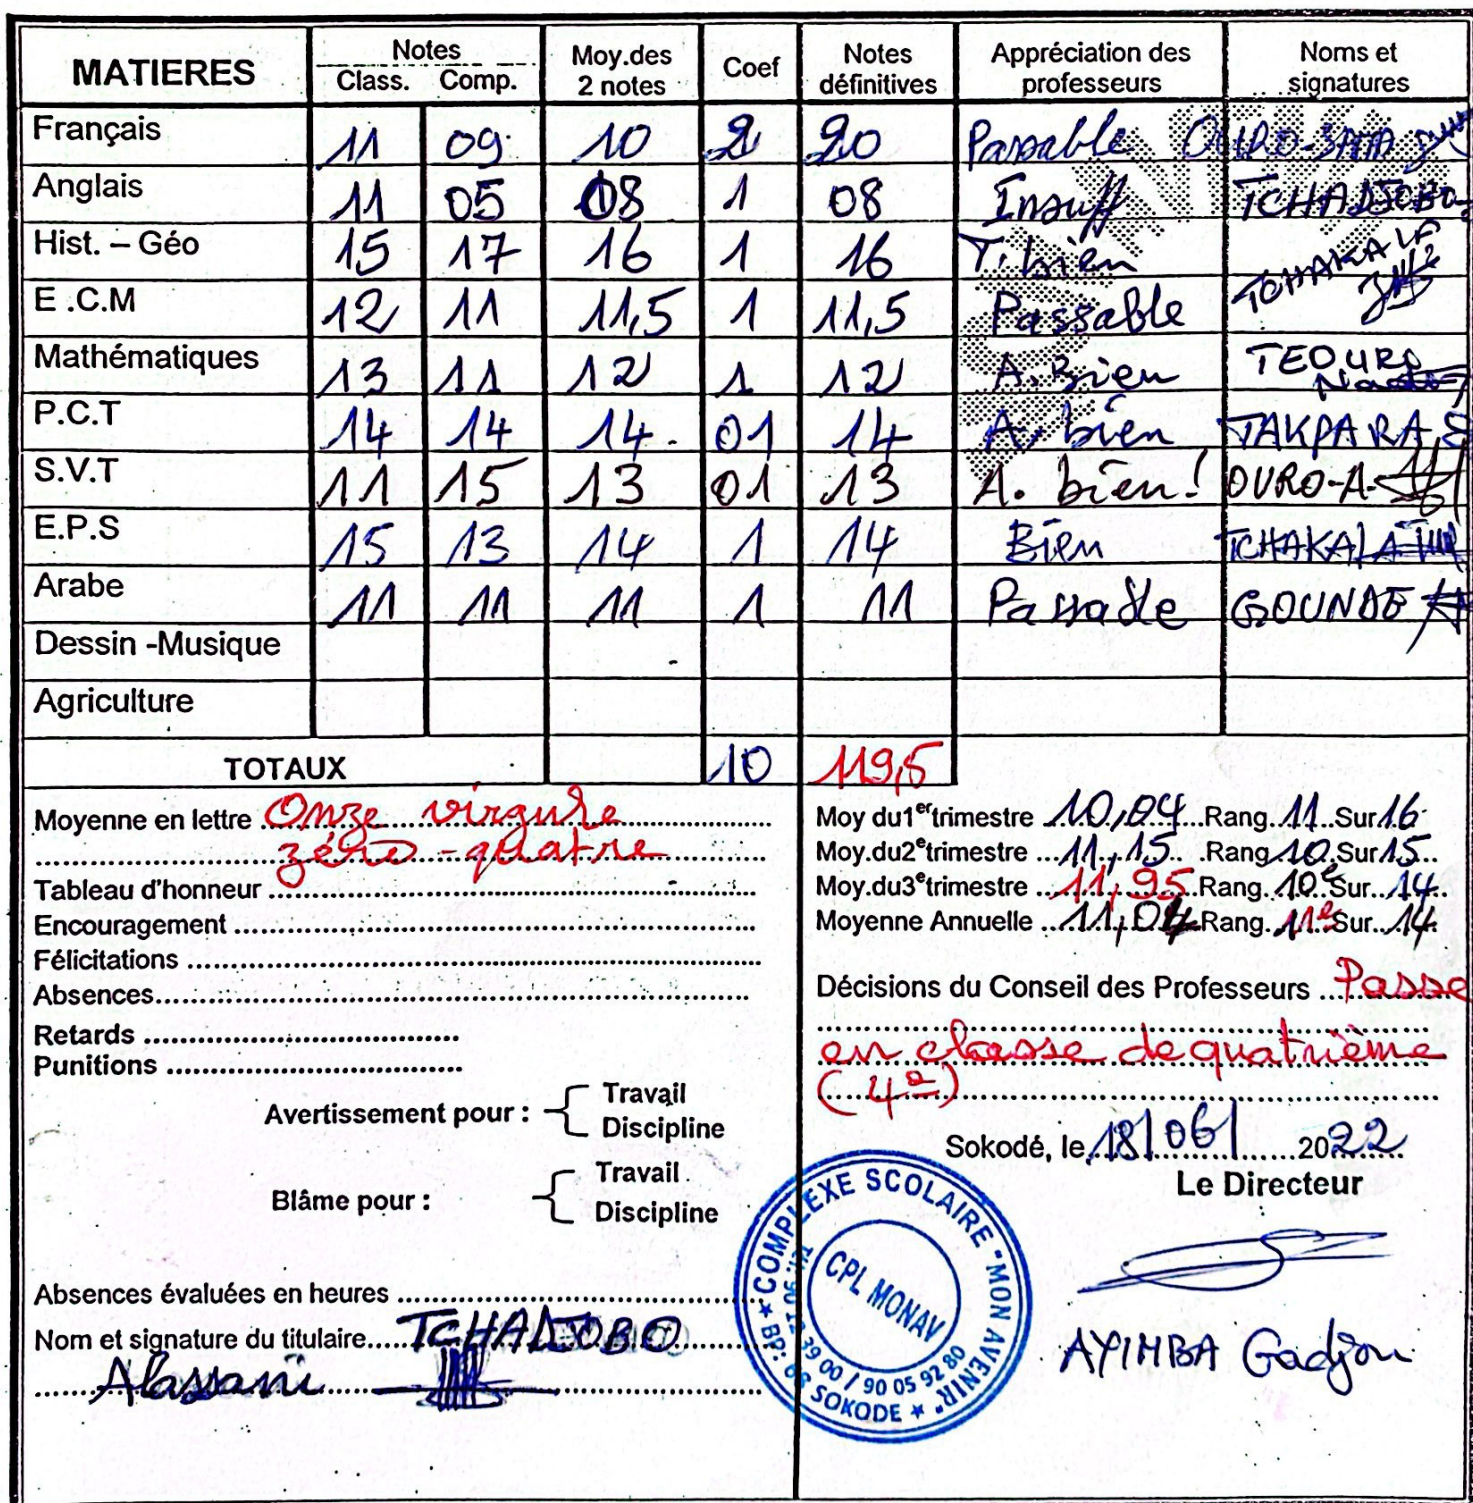 MATIERES Notes Moy.des Coef Notes Appréciation des Noms et
Class. Comp. 2 notes définitives professeurs signatures
Français 11 09 10 2 20 Passable OURO-
Anglais 11 05 08 1 08 Insuff TCHADJOBO
Hist. – Géo 15 17 16 1 16 T. bien TCHAKALA
E .C.M 12 11 11,5 1 11,5 Passable
Mathématiques 13 11 12 1 12 A. Bien TEOURI
P.C.T 14 14 14. 01 14 A. bien TAKPARA
S.V.T 11 15 13 01 13 A. bien! OURO-A-
E.P.S 15 13 14 1 14 Bien TCHAKALA
Arabe 11 11 11 1 11 Passable GOUNDE
Dessin -Musique
Agriculture
TOTAUX 10 119,5
Moyenne en lettre Onze virgule
zéro - quatre
Tableau d'honneur
Encouragement
Félicitations
Absences
Retards
Punitions
Avertissement pour : Travail
Discipline
Blâme pour : Travail
Discipline
Absences évaluées en heures
Nom et signature du titulaire TCHADJOBO
Alassani
Moy du1er trimestre 10,04 Rang 11 Sur 16
Moy.du2e trimestre 11,15 Rang 10 Sur 15
Moy.du3e trimestre 11,95 Rang 10e Sur 14
Moyenne Annuelle 11,04 Rang 11e Sur 14
Décisions du Conseil des Professeurs Passe
en classe de quatrième
(4e)
Sokodé, le 18/06/ 2022
Le Directeur
AYIMBA Gadjou
★ COMPLEXE SCOLAIRE "MON AVENIR" ★
CPL MONAV
39 00 / 90 05 92 80
SOKODE